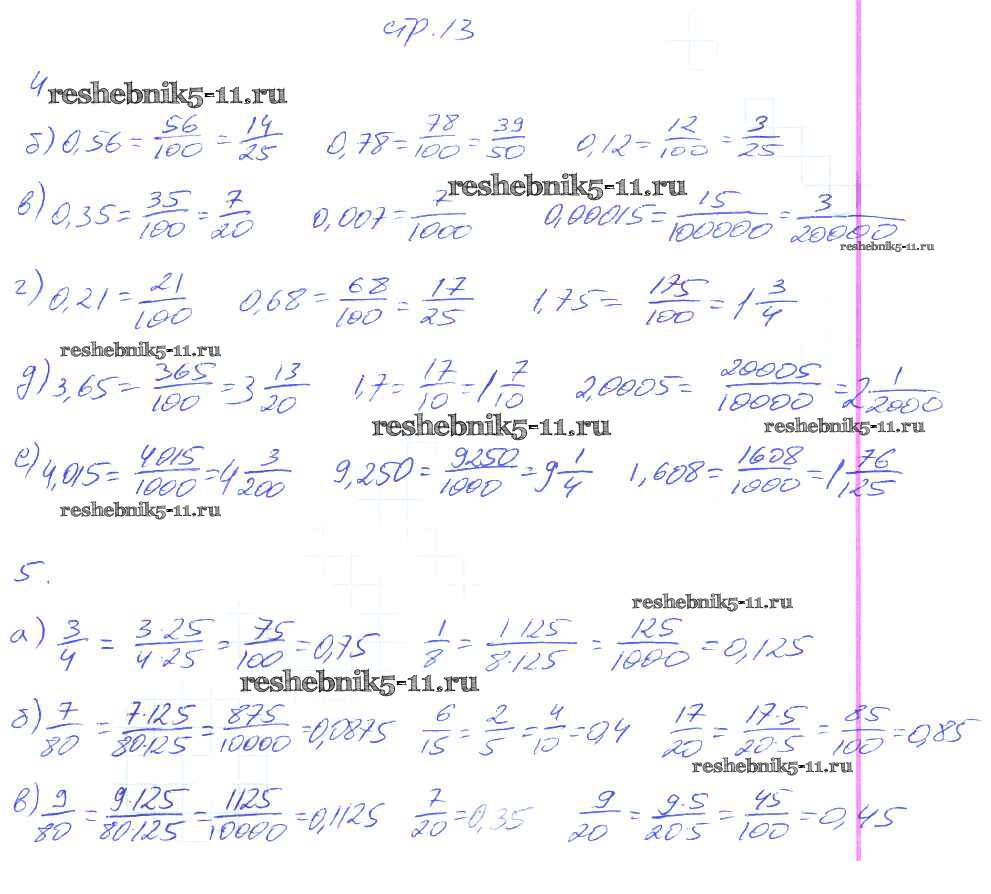 стр. 13
4 reshebnik5-11.ru
б) 0,56 = 56/100 = 14/25 0,78 = 78/100 = 39/50 0,12 = 12/100 = 3/25
reshebnik5-11.ru
в) 0,35 = 35/100 = 7/20 0,007 = 7/1000 0,00015 = 15/100000 = 3/20000
reshebnik5-11.ru
г) 0,21 = 21/100 0,68 = 68/100 = 17/25 1,75 = 175/100 = 1 3/4
reshebnik5-11.ru
д) 3,65 = 365/100 = 3 13/20 1,7 = 17/10 = 1 7/10 2,0005 = 20005/10000 = 2 1/2000
reshebnik5-11.ru reshebnik5-11.ru
е) 4,015 = 4015/1000 = 4 3/200 9,250 = 9250/1000 = 9 1/4 1,608 = 1608/1000 = 1 76/125
reshebnik5-11.ru
5.
reshebnik5-11.ru
а) 3/4 = 3·25/4·25 = 75/100 = 0,75 1/8 = 1·125/8·125 = 125/1000 = 0,125
reshebnik5-11.ru
б) 7/80 = 7·125/80·125 = 875/10000 = 0,0875 6/15 = 2/5 = 4/10 = 0,4 17/20 = 17·5/20·5 = 85/100 = 0,85
reshebnik5-11.ru
в) 9/80 = 9·125/80·125 = 1125/10000 = 0,1125 7/20 = 0,35 9/20 = 9·5/20·5 = 45/100 = 0,45